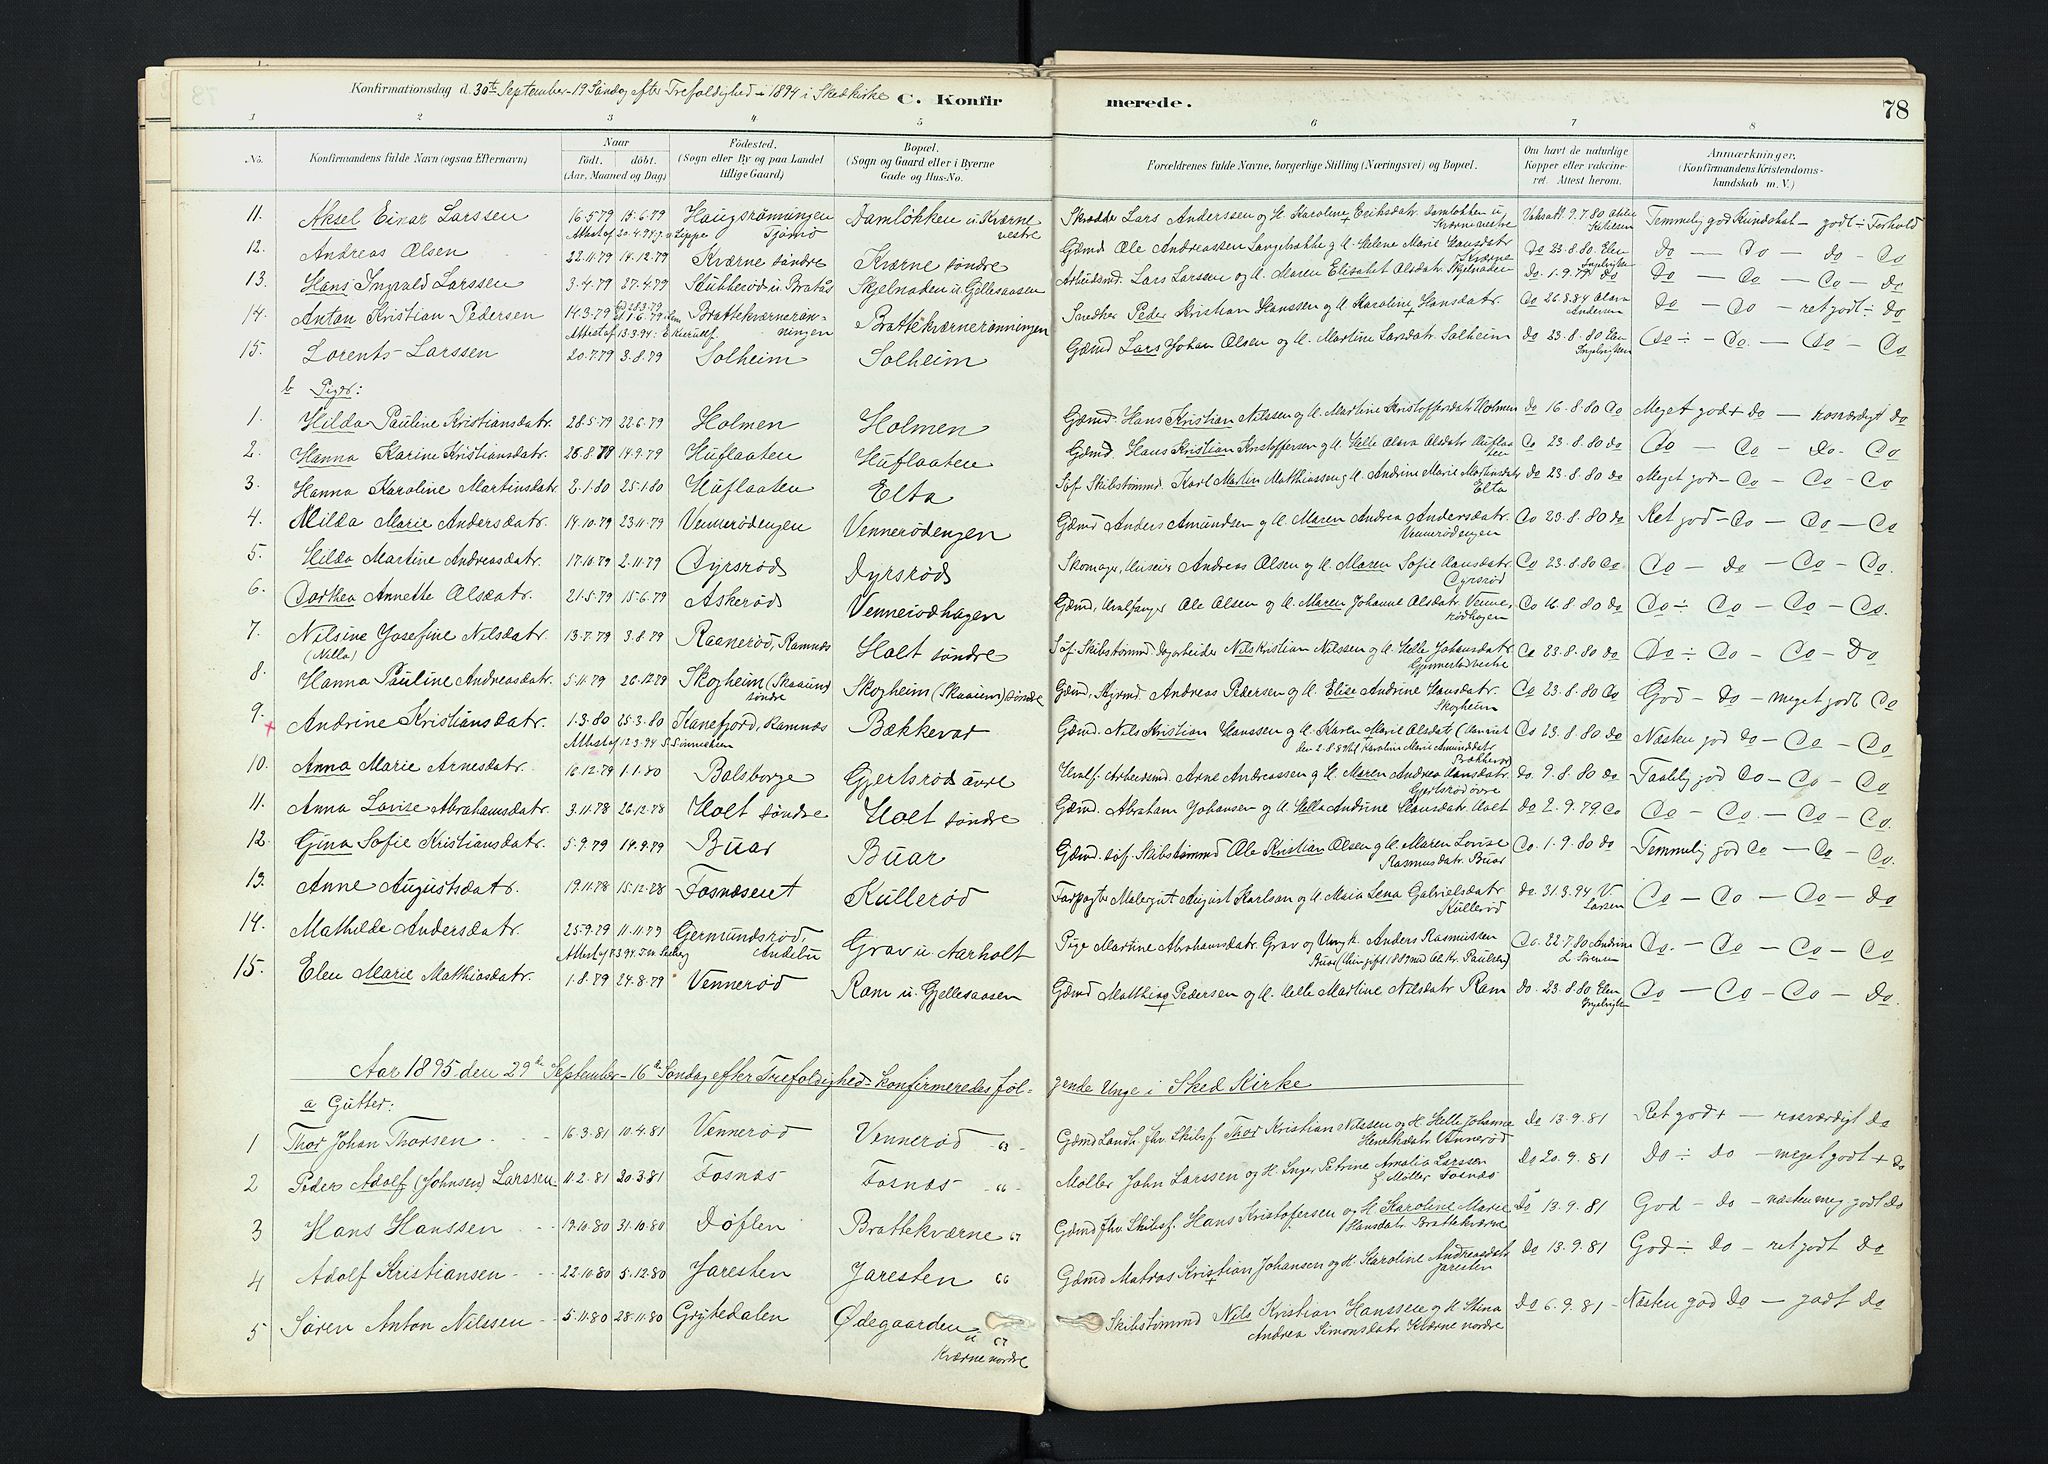 Konfirmationsdag d. 30te September - 19 Søndag efter Trefoldighed - 1894 i Skedkirke C. Konfirmerede. 78
1 2 3 4 5 6 7 8
No. Konfirmandens fulde Navn (ogsaa Efternavn) Naar født. døbt. (Aar, Maaned og Dag) Fødested. (Sogn eller By og paa Landet tillige Gaard) Bopæl. (Sogn og Gaard eller i Byerne Gade og Hus-No. Forældrenes fulde Navne, borgerlige Stilling (Næringsvei) og Bopæl. Om havt de naturlige Kopper efter vakcineret. Attest herom. Anmærkninger. (Konfirmandens Kristendomskundskab m. V.)
11. Aksel Einar Larssen 16.5.79 15.6.79 Haugsrønningen Damløkken u. Kværne vestre Skrædder Lars Anderssen og H. Karoline Eriksdatr. Damløkken u Kværne vestre 9.7.80 Temmelig god Kundskab - godt ÷ Forhold
Attest af 20.4.94 Tjømø
12. Andreas Olsen 22.11.79 14.12.79 Kværne søndre Kværne søndre Gdmd Ole Andreassen Langebakke og H. Helene Marie Hansdatr Kværne Do 23.8.80 Elen Ingelvigtsen Do - Do - do - Do
13. Hans Ingvald Larssen 3.4.79 27.4.79 Stubberød u. Bratås Skjelnaden u. Gjellesaasen Arbeidsmd. Lars Larssen og H. Maren Elisabet Olsdatr. Skjelnaden Do. 1.9.79 Do Do - Do - Do - Do
14. Anton Kristian Pedersen 14.3.79 Brattekværnerønningen Brattekværnerønningen Snedker Peder Kristian Hanssen og H. Karoline Hansdatr. Do 26.8.84 Olava Andersen Do - Do - ret godt ÷ Do
Attest af 13.3.94
15. Lorents Larssen 20.7.79 3.8.79 Solheim Solheim Gdmd Lars Johan Olsen og H. Martine Larsdatr Solheim Do 23.8.80 Elen Ingelvigtsen Do ÷ - Do - Do - Do
b Piger:
1. Hilda Pauline Kristiansdatr. 28.5.79 22.6.79 Holmen Holmen Gdmd. Hans Kristian Nilssen og H. Martine Kristoffersdatr Holmen Do 16.8.80 Do Meget god + Do - rosværdigt Do
2. Hanna Karine Kristiansdatr. 26.8.79 14.9.79 Huflaaten Huflaaten Gdmd. Hans Kristian Kristoffersen og H. Helle Olava Olsdatr Huflaaten Do 23.8.80 do Do - Do - Do - Do
3. Hanna Karoline Martinsdatr. 2.1.80 25.1.80 Huflaaten Elta Søf. Skibstømmd. Karl Martin Matthiassen og H. Andrine Marie Mortensdatr Elta Do 23.8.80 do Meget god - Do - Do - Do
4. Hilda Marie Andersdatr. 14.10.79 23.11.79 Vennerødengen Vennerødengen Gdmd Anders Amundsen og H. Maren Andrea Andersdatr. Vennerødengen Do 23.8.80 do Ret god - Do - Do - Do
5. Hilda Martine Andreasdatr. 17.10.79 2.11.79 Dyrsrød Dyrsrød Skomager, Huseier Andreas Olsen og H. Maren Sofie Hansdatr. Dyrsrød Do 23.8.80 Do Do - Do - Do - Do.
6. Dorthea Annette Olsdatr. 21.5.79 15.6.79 Askerød Vennerødhagen Gdmd, Hvalfanger Ole Olsen og H. Maren Johanne Olsdatr. Vennerødhagen Do 16.8.80 do Do ÷ Do - Do - Do.
7. Nilsine Josefine Nilsdatr. 13.7.79 3.8.79 Raanerød, Ramnæs Holt søndre Søf. Skibstømmd. Dagarbeider Nils Kristian Nilssen og H. Helle Johansdatr. Do 23.8.80 do Do ÷ Do - Do - Do
(Nilla)
8. Hanna Pauline Andreasdatr. 5.11.79 26.12.79 Skogheim (Skaaum) søndre Skogheim (Skaaum) søndre Gdmd. Styrmd. Andreas Pedersen og H. Elise Andrine Hansdatr. Skogheim Do 23.8.80 Do God - Do - meget godt Do
9. Andrine Kristiansdatr. 1.3.80 25.3.80 Kanefjord, Ramnæs Bækkevar Gdmd. Nils Kristian Hanssen og H. Karen Marie Olsdatr (Henriet den 2.8.94) Karoline Marie Amundsdatr. Bækkevar Do 23.8.80 do Næsten god Do - Do - Do
Attest af 12.3.94
10. Anna Marie Arnesdatr. 16.12.79 1.1.80 Balsborge Gjertsrød øvre Hvalf. Arbeidsmd. Arne Andreassen og H. Maren Andrea Hansdatr. Gjertsrød øvre Do. 9.8.80 Do Taalelig god Do - Do - Do
11. Anna Lovise Abrahamsdatr. 3.11.78 26.12.78 Holt søndre Holt søndre Gdmd. Abraham Johansen og H. Helle Andrine Hansdatr. Holt Do 2.9.79 Do Do - Do - Do - Do.
12. Gina Sofie Kristiansdatr. 5.9.79 14.9.79 Buar Buar Gdmd. søf. Skibstømmd Ole Kristian Olsen og H. Maren Lovise Rasmusdatr. Buar Do. 1.9.80 do Temmelig god Do - Do - Do.
13. Anne Augustsdatr. 19.11.78 15.12.78 Fosnæseiet Kullerød Forpagter Malergut August Karlsen og H. Maia Lena Gabrielsdatr. Kullerød Do. 31.3.94 V. Larsen Do - Do - Do - Do
14. Mathilde Andersdatr. 25.9.79 11.11.79 Germundsrød, Andebu Grav u. Aarholt Pige Martine Abrahamsdatr. Grav og Ungk. Anders Rasmussen Buar (Hun gift 1889 med Ol. Kr. Paulsen) Do. 22.7.80 Andrine L Sørensen Do. - Do - Do - Do
15. Elen Marie Mathiasdatr. 1.8.79 24.8.79 Vennerød Ram u. Gjellesaasen Gdmd Matthias Pedersen og H. Helle Martine Nilsdatr Ram Do. 23.8.80 Elen Ingelvigtsen Do - Do - Do - Do.
Aar 1895 den 29de September - 16de Søndag efter Trefoldighed - konfirmeredes følgende Unge i Sked Kirke
a Gutter:
1 Thor Johan Thorsen 16.3.81 10.4.81 Vennerød Vennerød 63 Gdmd Landh. fhv. Skibsf. Thor Kristian Nilssen og H. Helle Johanne Henriksdatr. Vennerød Do 13.9.81 Ret god + - rosværdigt Do
2 Peder Adolf (Johnsen) Larssen 11.2.81 20.3.81 Fosnæs Fosnæs 66 Møller John Larssen og H. Inger Petrine Amalia Larssen f. Møller Fosnæs Do 20.9.81 Do ÷ Do - meget godt + Do
3 Hans Hanssen 19.10.80 31.10.80 Døflen Brattekværne 67 Gdmd fhv. Skibsf. Hans Kristofersen og H. Karoline Marie Hansdatr. Brattekværne Do 13.9.81 God - Do - næsten meg. godt Do
4 Adolf Kristiansen 22.10.80 5.12.80 Jaresten Jaresten 66 Gdmd Matros Kristian Johansen og H. Karoline Andreasdatr Jaresten Do 13.9.81 God ÷ Do - ret godt Do
5 Søren Anton Nilssen 5.11.80 28.11.80 Grytedalen Ødegaarden u Kværne nordre 67 Skibstømmd Nils Kristian Hanssen og H. Stina Andrea Simonsdatr Kværne nordre Do 6.9.81 - Næsten god Do - godt Do